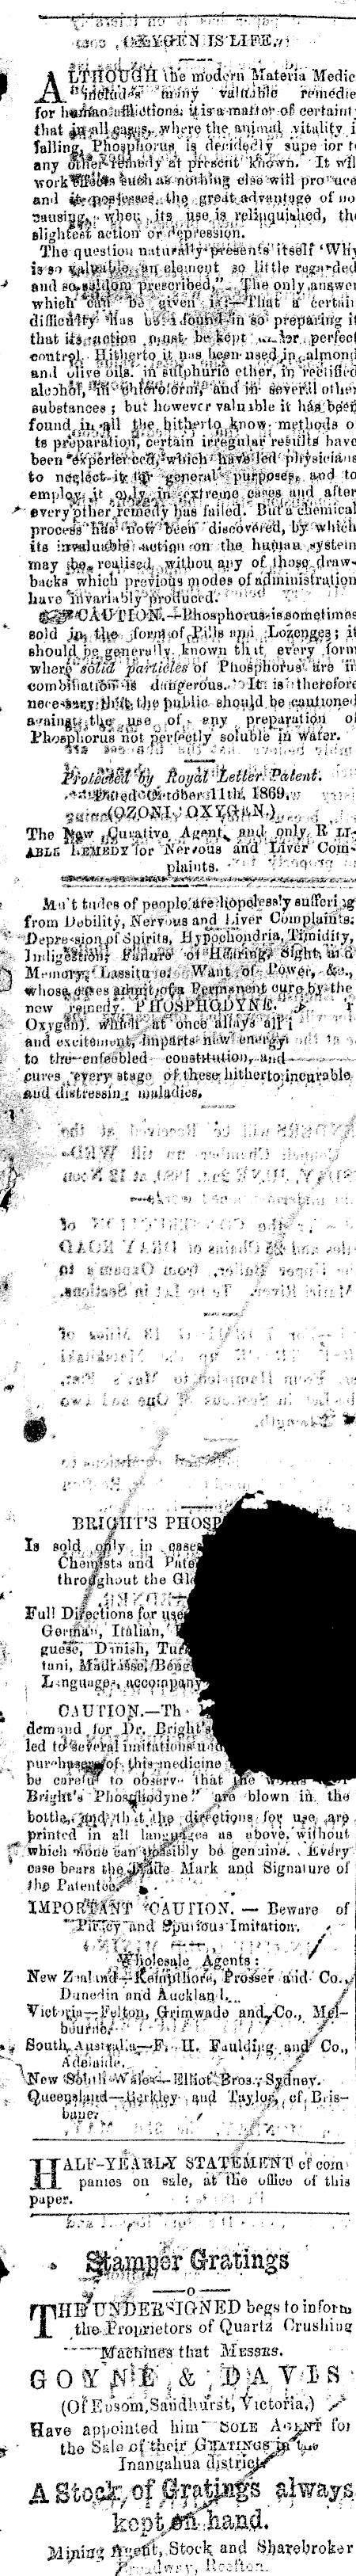 OXYGEN IS LIFE.
ALTHOUGH the modern Materia Medic
includes many valuable remedie
for human afflictions, it is a matter of certaint
that in all cases, where the animal vitality i
failing, Phosphorus is decidedly supe ior t
any other remedy at present known. It wil
work effects such as nothing else will pro uce
and it possesses the great advantage of no
causing, when its use is relinquished, the
slightest action or depression.
The question naturally presents itself 'Why
is so valuable an element so little regarded
and so seldom prescribed," The only answer
which can be given is:—That a certain
difficulty has been found in so preparing it
that its action must be kept under perfect
control. Hitherto it has been used in almond
and olive oils. in sulphuric ether, in rectified
alcohol, in chloroform, and in several other
substances ; but however valuable it has been
found in all the hitherto know. methods o
ts preparation, certain irregular results have
been experienced, which have led physicians
to neglect it for general purposes, and to
employ it only in extreme cases and after
every other remedy has failed. But a chemical
process has now been discovered, by which
its invaluable action on the human system
may be realised withou any of those draw-
backs which previous modes of administration
have invariably produced.
CAUTION.—Phosphorus is sometimes
sold in the form of Pills and Lozenges; it
should be generally known that every form
where solid particles of Phosphorus are in
combination is dangerous. It is therefore
necessary that the public should be cautioned
against the use of any preparation of
Phosphorus not perfectly soluble in water.
Protected by Royal Letter Patent.
Dated October 11th, 1869.
(OZONIC OXYGEN.)
The New Curative Agent, and only R LI-
ABLE REMEDY for Nervous and Liver Com-
plaints.
Mu't tudes of people are hopelessly suffering
from Debility, Nervous and Liver Complaints,
Depression of Spirits, Hypochondria, Timidity,
Indigestion, Failure of Hearing, Sight, and
Memory, Lassitude, Want of Power, &c.,
whose cases admit of a Permanent cure by the
new remedy, PHOSPHODYNE.
Oxygen). which at once allays all i
and excitement, imparts new energy
to the enfeebled constitution, and
cures every stage of these hitherto incurable
and distressing maladies.
BRIGHT'S PHOSP
Is sold only in cases
Chemists and Pate
throughout the Gl
Full Directions for use
German, Italian,
guese, Danish, Tur
tani, Madrasse, Beng
Languages, accompany
CAUTION.—Th
demand for Dr. Bright's
led to several imitations und
purchasers of this medicine
be careful to observe that the words
Bright's Phosphodyne" are blown in the
bottle, and that the directions for use are
printed in all languages as above, without
which none can possibly be genuine. Every
case bears the Trade Mark and Signature of
the Patentee.
IMPORTANT CAUTION. — Beware of
Piracy and Spurious Imitation.
Wholesale Agents:
New Zealand—Kempthore, Prosser and Co.,
Dunedin and Auckland.
Victoria—Felton, Grimwade and Co., Mel-
bourne.
South Australia—F. H. Faulding and Co.,
Adelaide.
New South Wales—Elliot Bros., Sydney.
Queensland—Berkley and Taylor, of Bris-
bane.
HALF-YEARLY STATEMENT of com
panies on sale, at the office of this
paper.
Stamper Gratings
—o—
THE UNDERSIGNED begs to inform
the Proprietors of Quartz Crushing
Machines that MESSRS.
GOYNE & DAVIS
(Of Epsom, Sandhurst, Victoria,)
Have appointed him SOLE AGENT for
the Sale of their GRATINGS in the
Inangahua district
A Stock of Gratings always
kept on hand.
Mining Agent, Stock and Sharebroker
Broadway, Reefton.